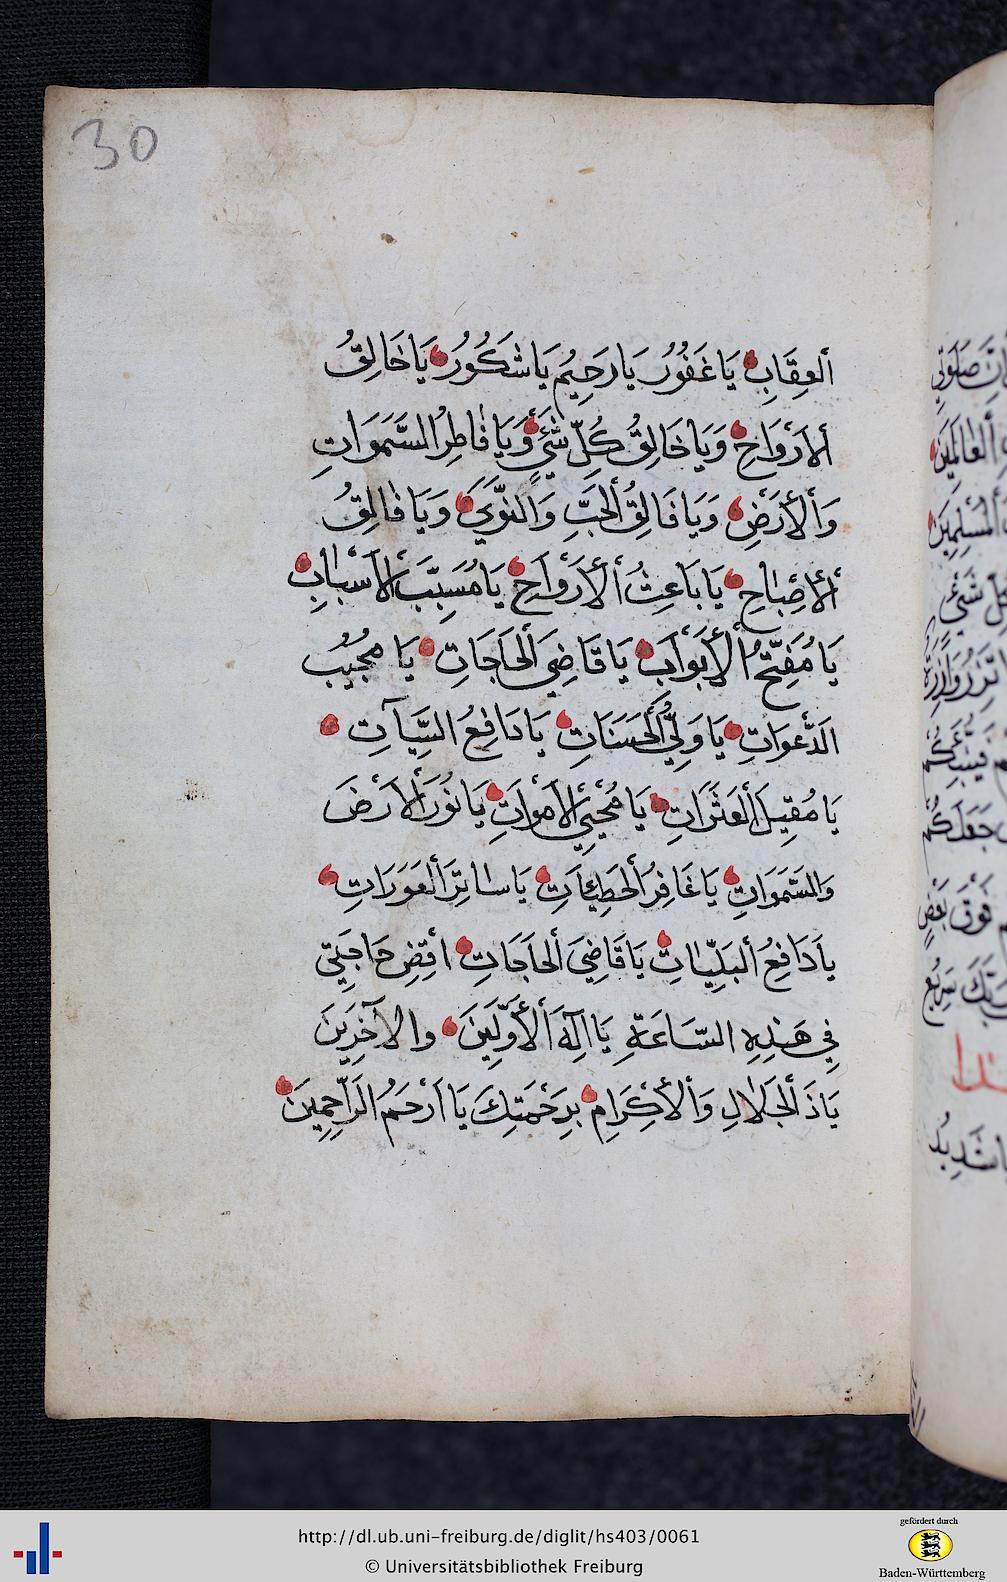 30
ألعِقَابِ يَا غَفُوُرُ يَا رَحِيُم يَا شَكُورُ يَا خَالِقُ
ألاَرْوَاحِ وَيَا خَالِقُ كُلِّ شَئٍ وَيَا فَاطِرُ السَّمَوَاتِ
وَألأَرْضِ وَيَا فَالِقُ ألحَبَّ وَالنَّوَيَ وَيَا فَالِقُ
ألأصْبَاحِ يَا بَاعِثُ ألأَرْوَاحِ يَا مُسَبِّبَ ألاَسْبَابِ
يَا مُفَتِّحُ ألأَبْوَابَ يَا قَاضِيَ ألحَاجَاتِ يَا مجُيُب
الَدَّعَوَاتِ يَا وَلِيُّ ألحَسَنَاتِ يَا دَافِعُ السَّيِّآتِ
يَا مُقِيلَ ألعَثَرَاتِ يَا مُحْيِيَ ألاَمْوَاتِ يَا نُورَ ألاَرْضَ
وَالسَّمَوَاتِ يَا غَافِرُ ألخَطِيئَاتِ يَا سَاتِرَ ألعَوَرَاتِ
يَا دَافِعُ ألبَلِّيَاتِ يَا قَاضِيَ ألحَاجَاتِ اقْضِ حَاجَتِي
فِي هَذِهِ السَّاعَةِ يَا اِلَهَ ألأَوَّلِينَ والاَخِرِينَ
يَا ذَ ألجَلاَلِ وَألأكْرَامِ بِرَحْمَتِكَ يَا اَرْحَمُ الرَاحِمِينَ
صَلَوتِي
ألعَالَمِينَ
ألمُسْلِمِينَ
شَئٍ
جَعَلَكُم
فَوْقَ بَعْضٍ
سَرِيعُ
شَدِيدُ
http://dl.ub.uni-freiburg.de/diglit/hs403/0061
© Universitätsbibliothek Freiburg
gefördert durch
Baden-Württemberg